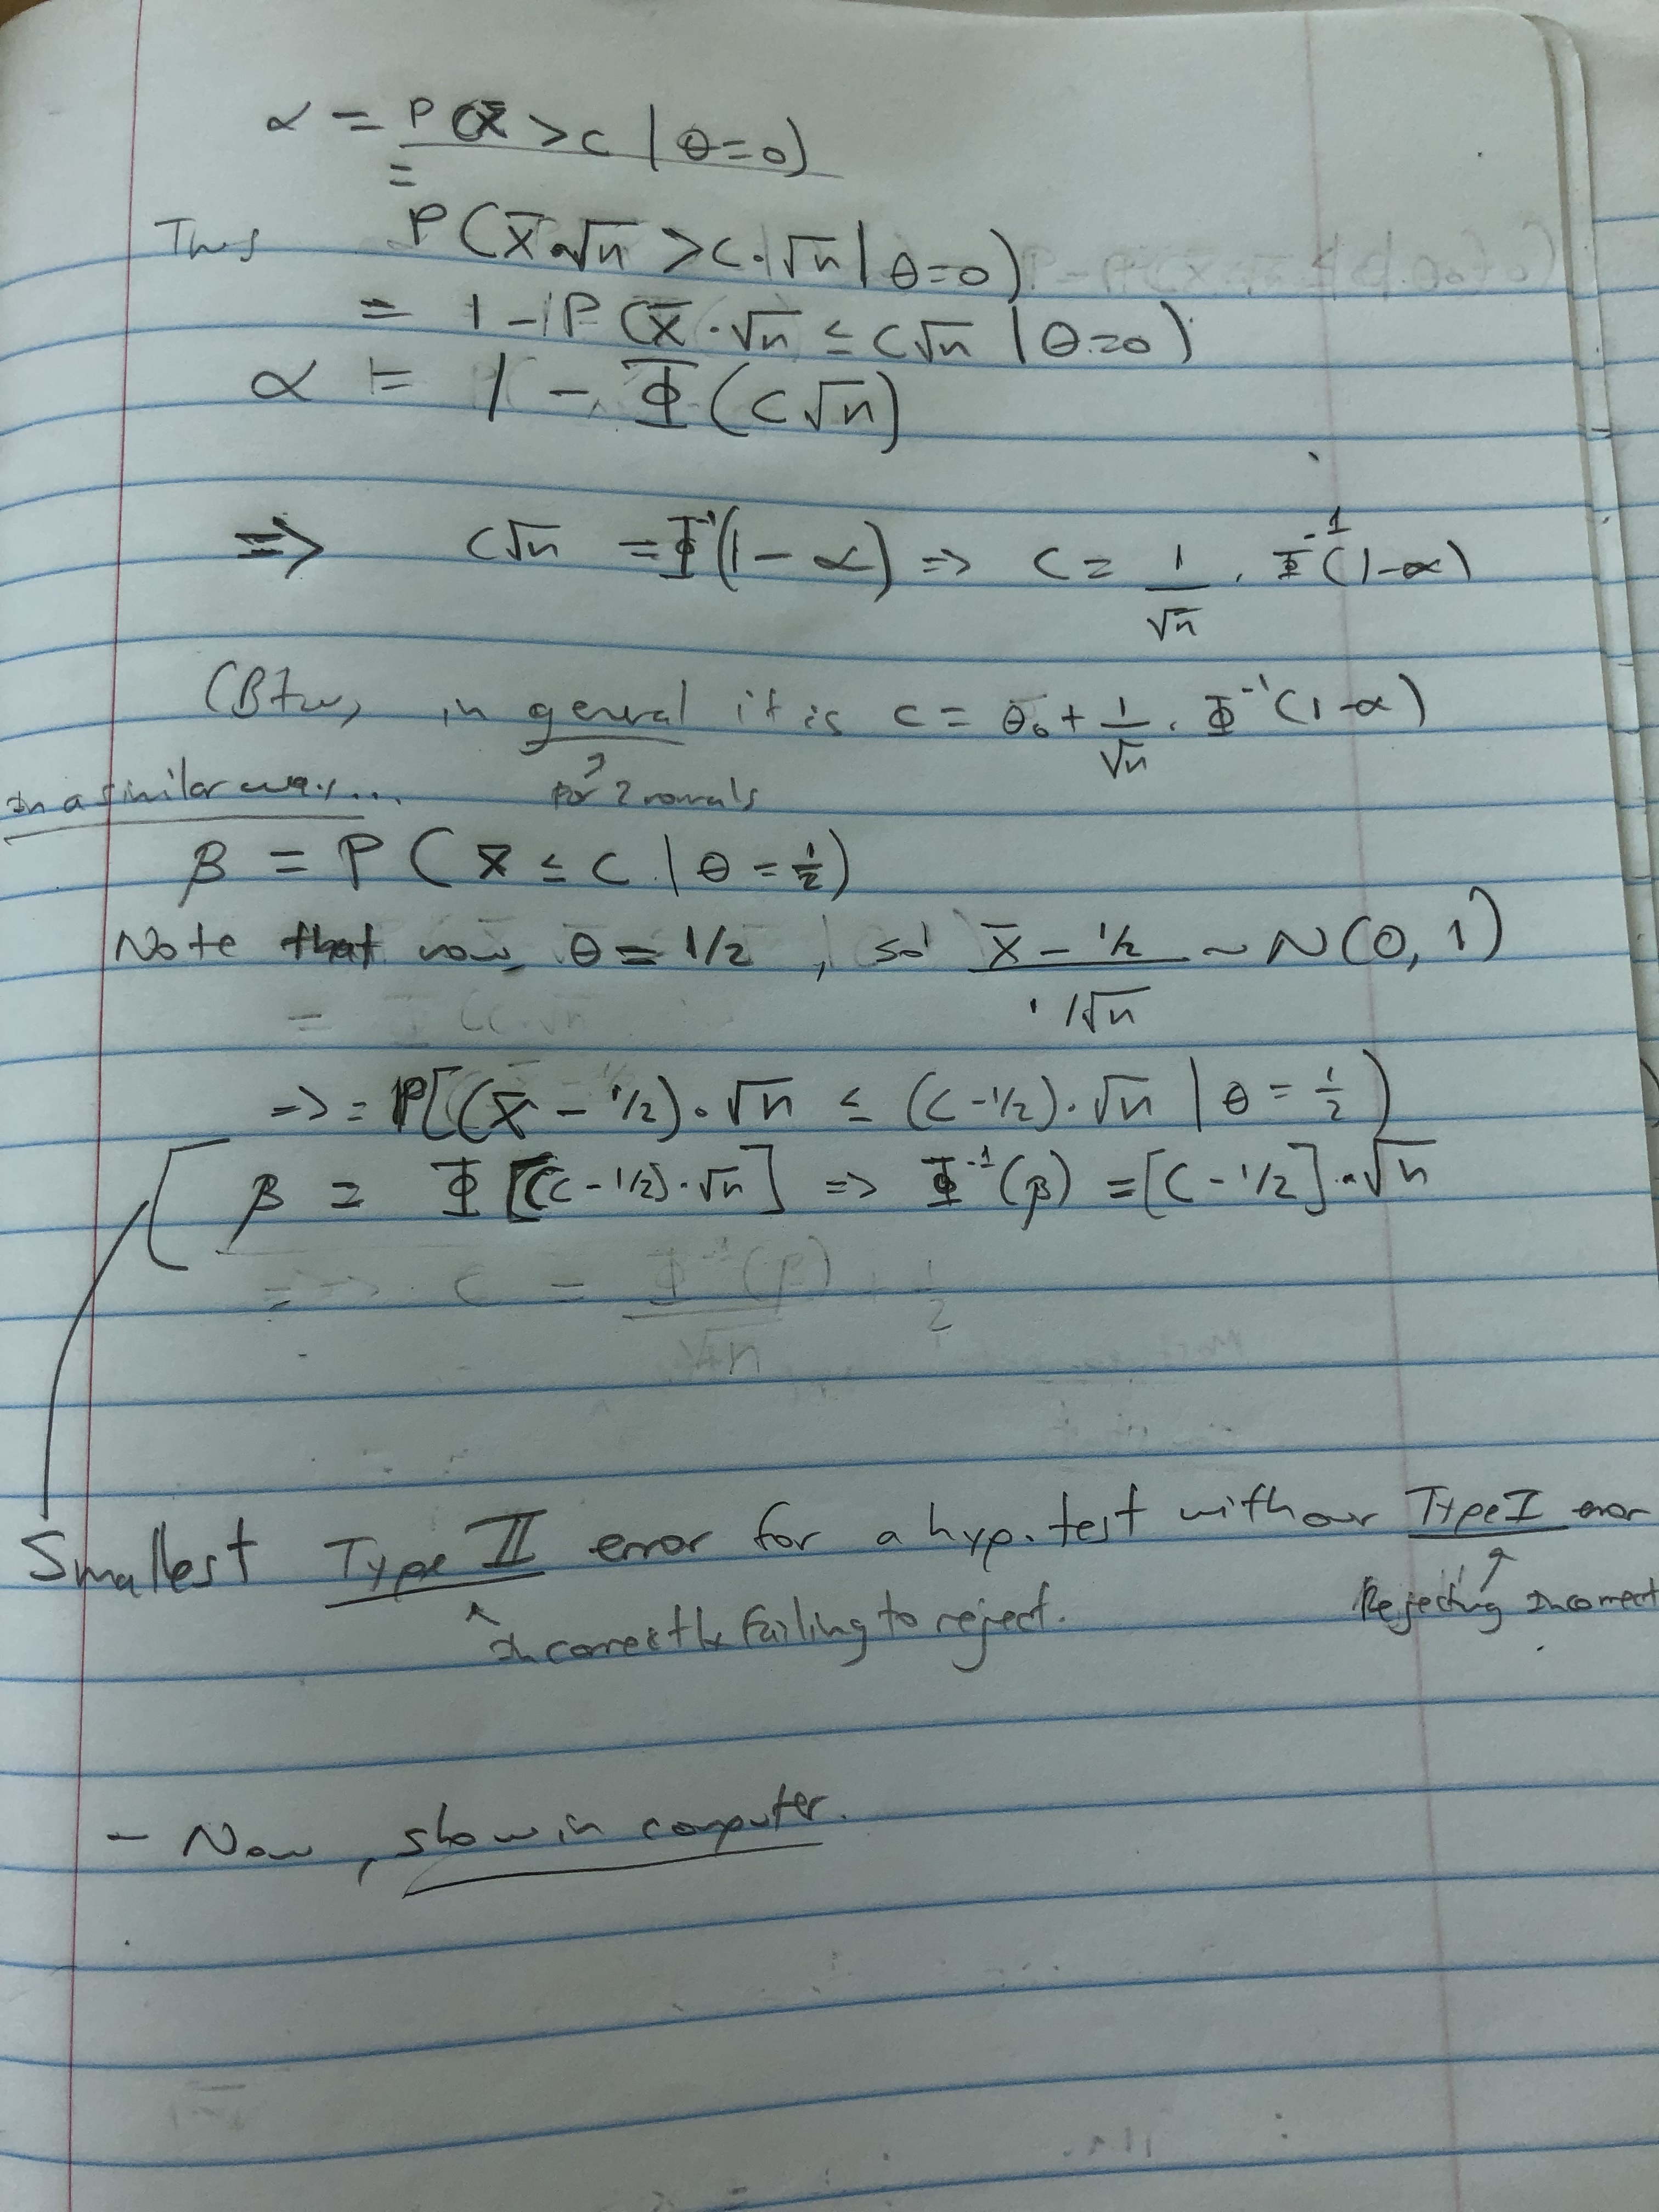 α = P(X̄ > c | θ=0)
=
Thus P(X̄·√n > c·√n | θ=0)
= 1 - P(X̄·√n ≤ c√n | θ=0)
α = 1 - Φ(c√n)
=> c√n = Φ⁻¹(1-α) => c = 1/√n · Φ⁻¹(1-α)
(Btw, in general it is c = θ₀ + 1/√n · Φ⁻¹(1-α)
for 2 normals
In a similar way...
β = P(X̄ ≤ c | θ = 1/2)
Note that now, θ = 1/2, so X̄ - 1/2 / 1/√n ~ N(0, 1)
=> = P[(X̄ - 1/2)·√n ≤ (c - 1/2)·√n | θ = 1/2)
β = Φ[(c - 1/2)·√n] => Φ⁻¹(β) = [c - 1/2]·√n
=> c = Φ⁻¹(β)/√n + 1/2
Smallest Type II error for a hyp. test with our Type I error
Incorrectly failing to reject.
Rejecting Incorrect
- Now, show in computer.